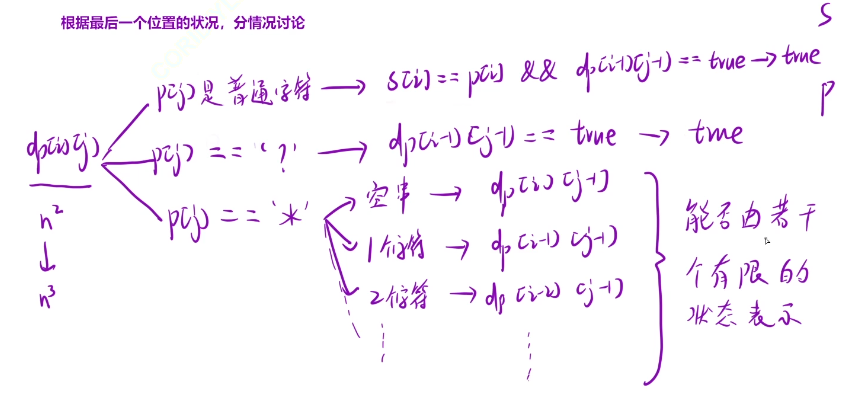 根据最后一个位置的状况，分情况讨论
S
p[j]是普通字符 → s[i] == p[j] && dp[i-1][j-1] == true → true
P
dp[i][j]
p[j] == '?' → dp[i-1][j-1] == true → true
p[j] == '*'
空串 → dp[i][j-1]
1个字符 → dp[i-1][j-1]
2个字符 → dp[i-2][j-1]
n²
↓
n³
能否由若干
个有限的
状态表示